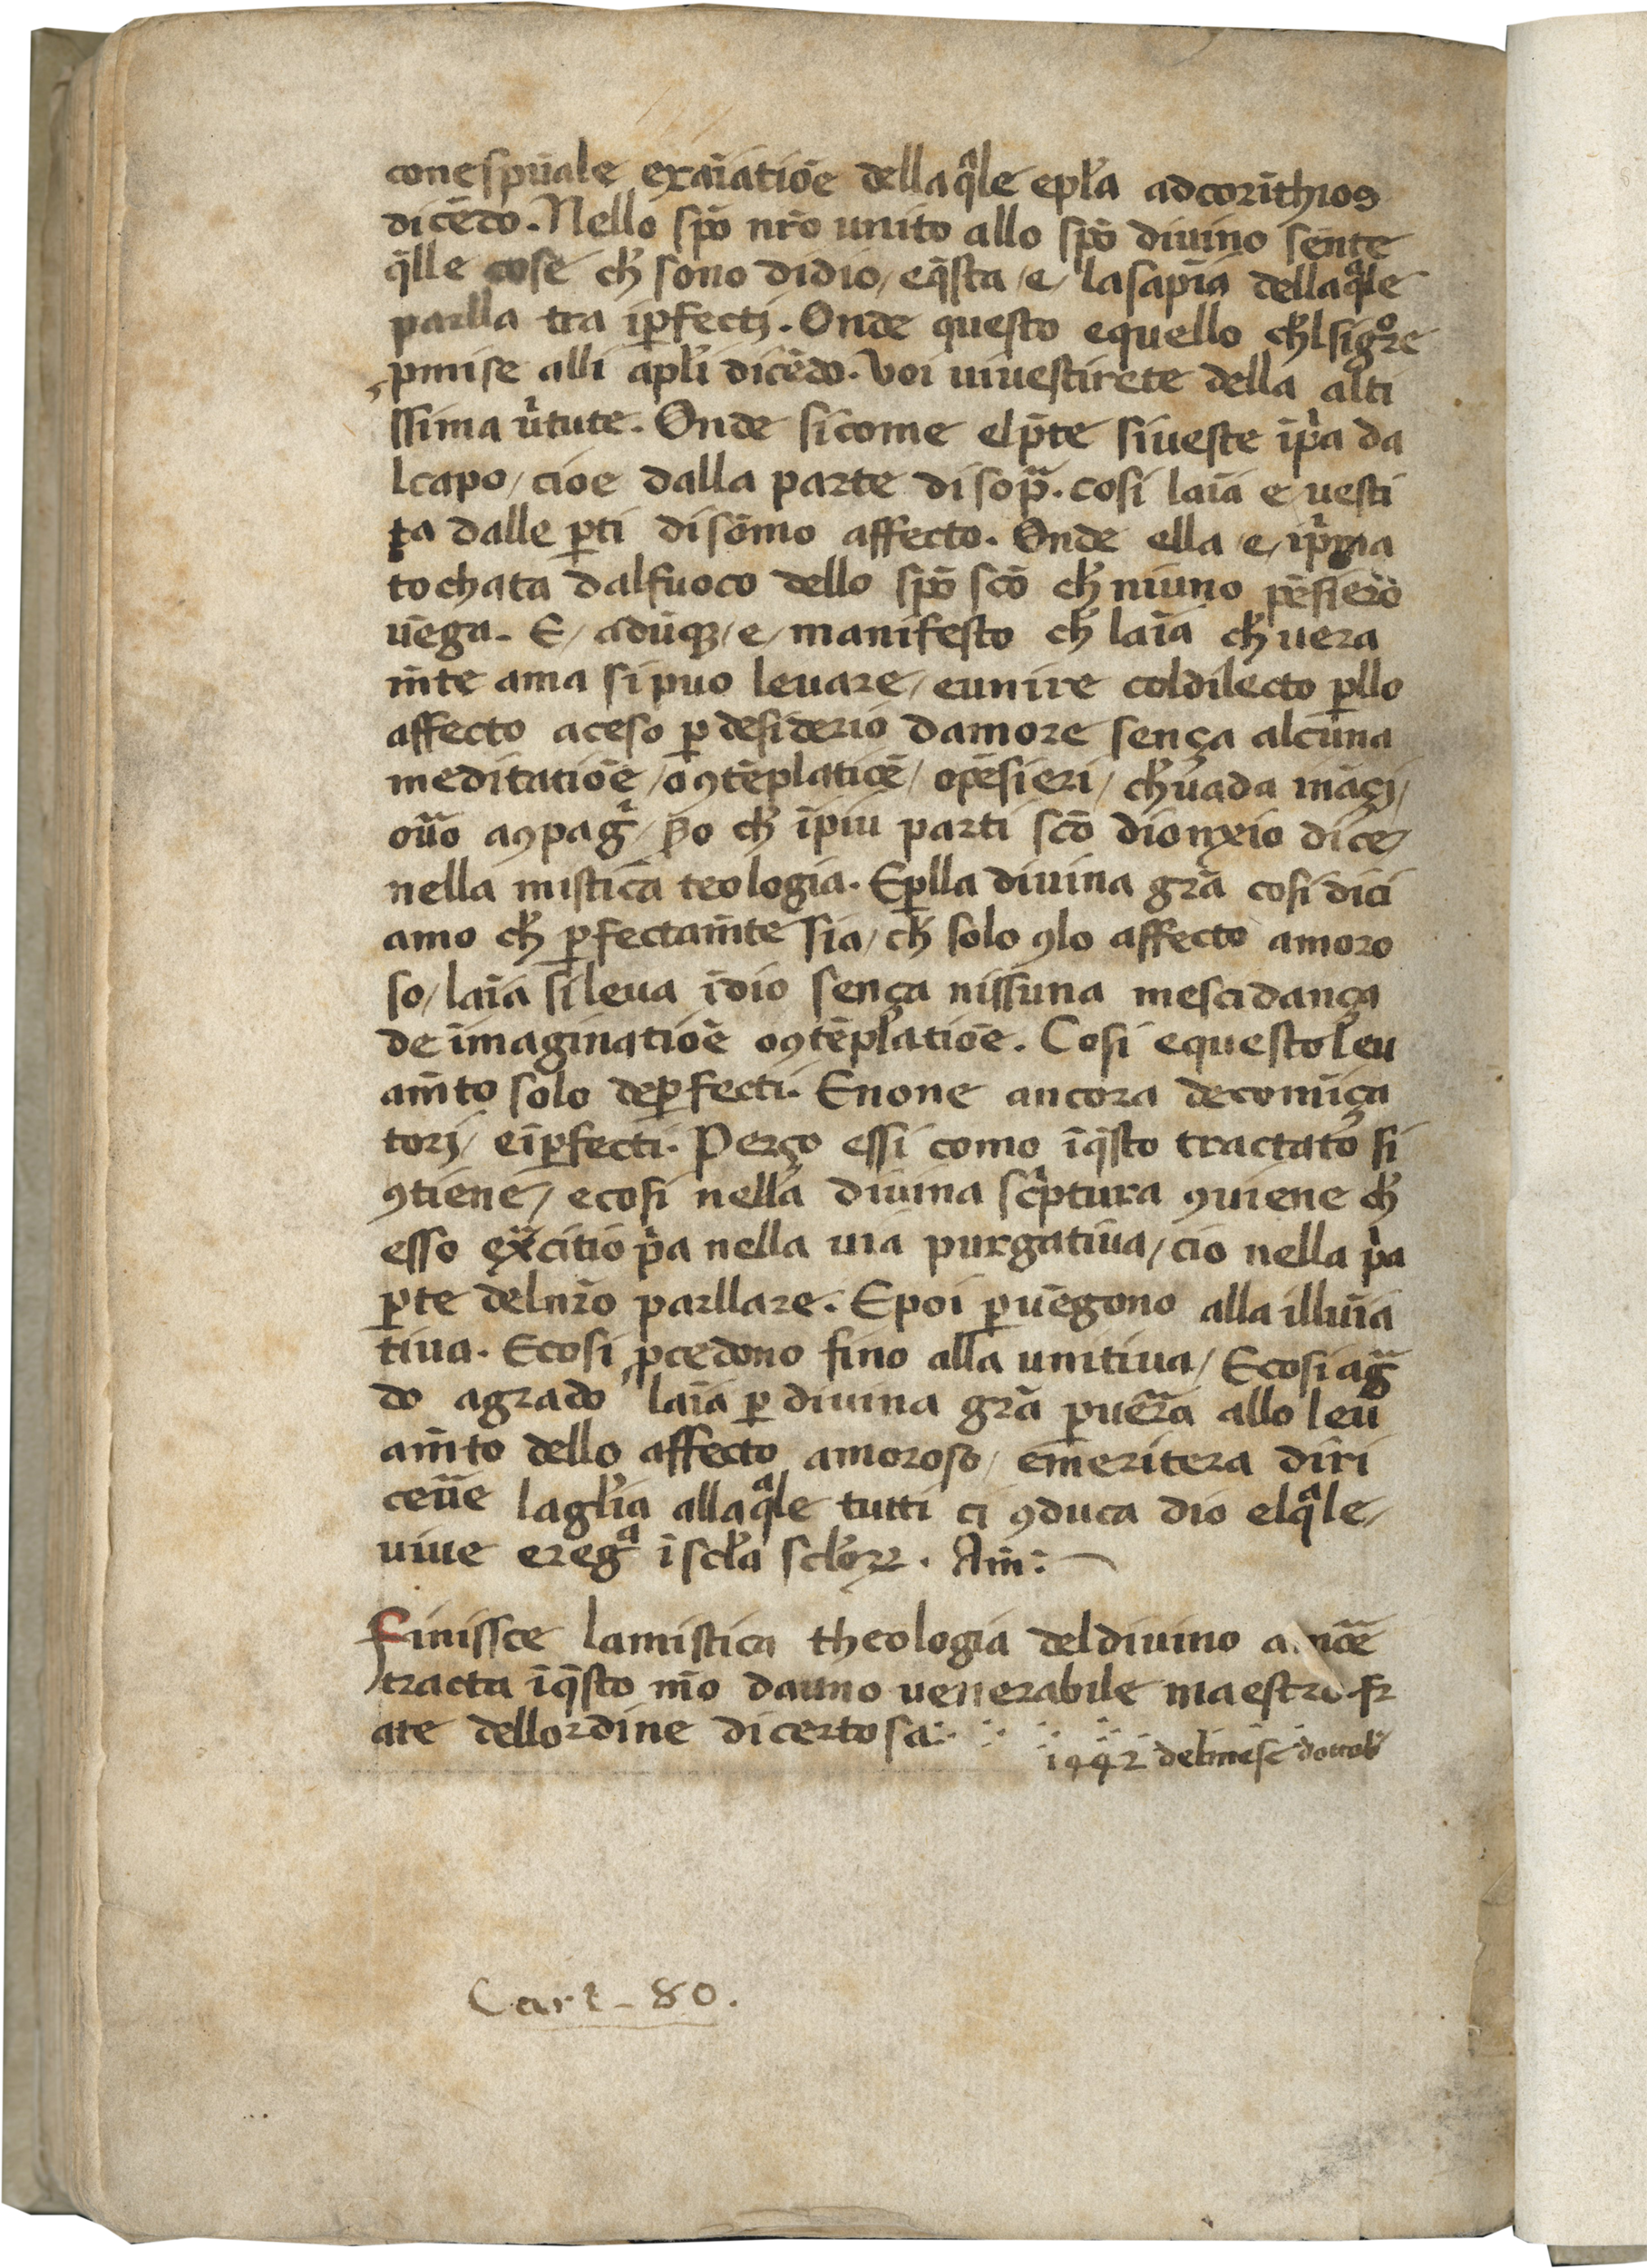 conespūale exaīatiōe dellaq̄le epl̄a adcorīthios
dicēdo. Nello sp̄o nr̄o unito allo sp̄o diuino sente
q̄lle cose ch̄ sono didio / eq̄sta / e / lasapīa dellaq̄le
parlla tra iꝑfecti. Onde questo equello ch̄lsigͦre
ꝓmise alli apl̄i dicēdo. Voi uiuestirete della alti
ssima ūtute. Onde sicome elp̄te siueste īp̄a da
lcapo / cioe dalla parte disop̄a. cosi laīa e uesti
ta dalle ꝑti disōmo affecto. Onde ella / e / īp̄ma
tochata dalfuoco dello sp̄o sc̄o ch̄ niuno pēsiero
uēga. E / adūqꝫ / e / manifesto ch̄ laīa ch̄ uera
m̄te ama sipuo leuare / eunire coldilecto ꝑllo
affecto aceso ꝑ desiderio damore sença alcuna
meditatiōe / oꝯtēplatiōe / opēsieri / ch̄ uada ināçi /
ou̅o aꝯpag̅ / ꝑo ch̄ īpiu parti sc̄o dionxio dice /
nella mistica teologia. Eꝑlla diuina gr̄a cosi dici
amo ch̄ ꝑfectam̄te sia / ch̄ solo ꝯlo affecto amoro
so / laīa sileua īdio sença nissuna mescidança
de imaginatiōe oꝯtēplatiōe. Cosi equesto leu
am̄to solo deꝑfecti. Enone ancora decomīça
tori / eīꝑfecti. Perço essi como īq̄sto tractato si
ꝯtiene / ecosi nella diuina sc̄ptura ꝯuiene ch̄
esso ex̄citio p̄a nella uia purgatiua / cio nella p̄a
ꝑte delnr̄o parllare. Epoi ꝑuēgono alla illuīa
tiua. Ecosi ꝓcedono fino alla unitiua / Ecosi ag̅
do agrado laīa ꝑ diuina gr̄a ꝑuēra allo leu
am̄to dello affecto amoroso / emeritera diri
ceu̅e lagl̄ia allaq̄le tutti ci ꝯduca dio elq̄le /
uiue eregᵃ ī scl̄a scl̄oꝝ. Am̄:
Finissce lamistica theologia deldiuino
tracta īq̄sto m̄o dauno uenerabile maestro fr
ate dellordine dicertosa
1442 delmese dottob̄
Cart - 80.